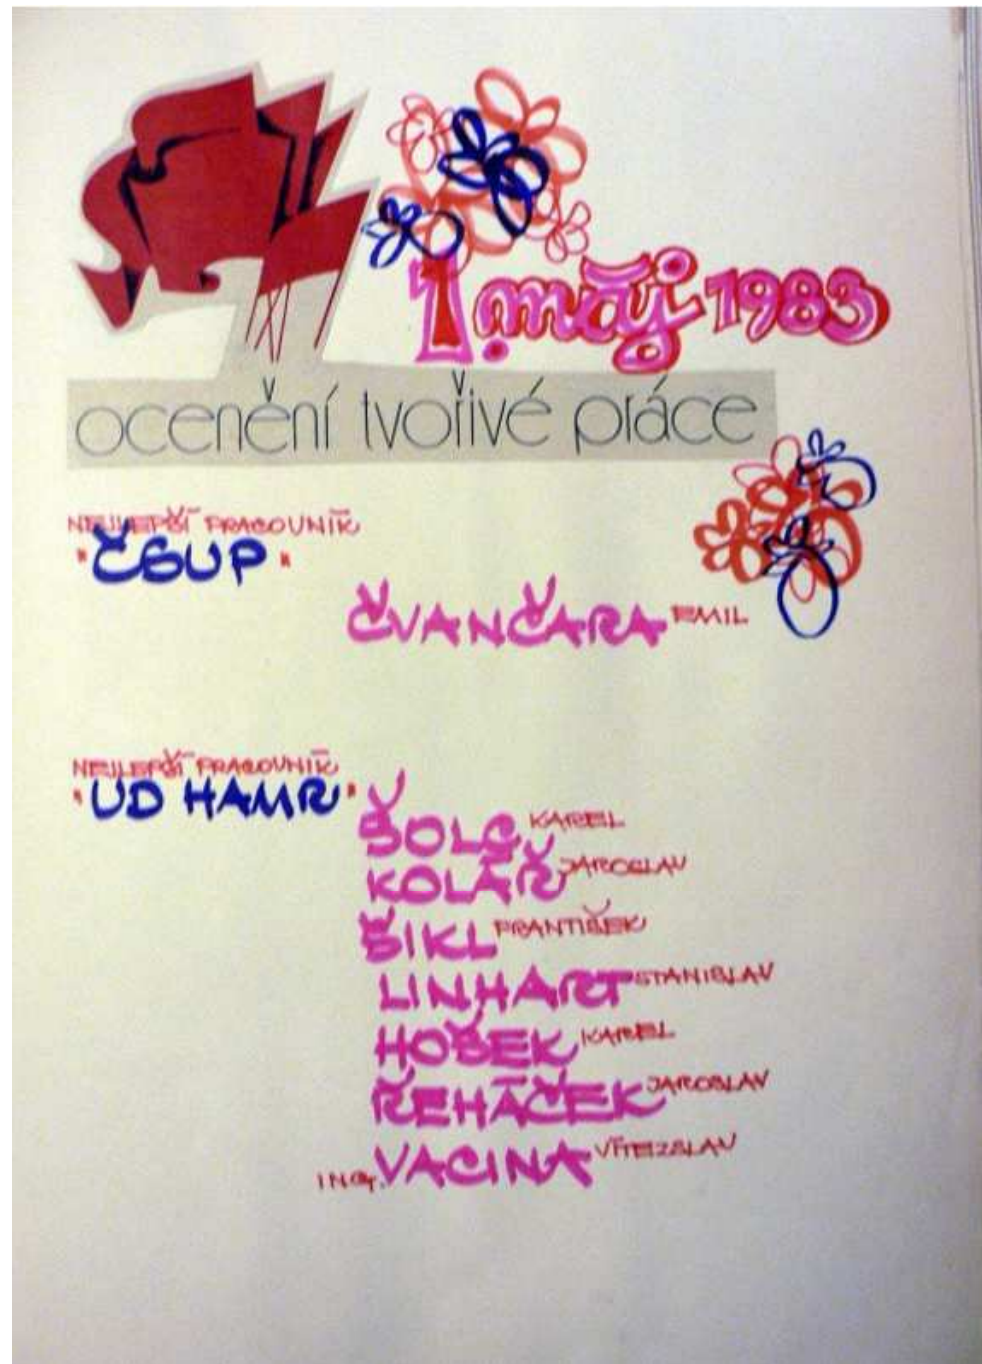 1. máj 1983
ocenění tvořivé práce
NEJLEPŠÍ PRACOVNÍK
"ČSUP"
ČVANČARA EMIL
NEJLEPŠÍ PRACOVNÍK
"UD HAMR"
ŠOLC KAREL
KOLÁŘ JAROSLAV
ŠIKL FRANTIŠEK
LINHART STANISLAV
HOŠEK KAREL
ŘEHÁČEK JAROSLAV
ING. VACINA VÍTEZSLAV